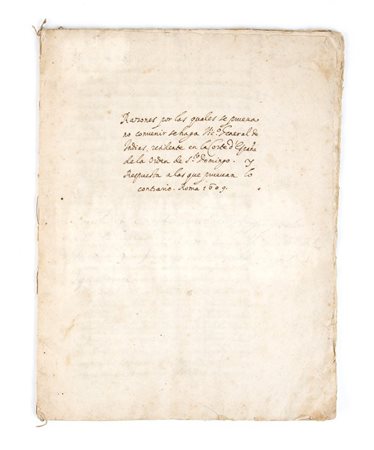 Razones por las quales se prueua
no conuenir se haga Vic.º General de
Indias, residente en la Corte d España
de la Orden de S.to Domingo. y
Respuesta a las que prueuan lo
contrario. Roma 1609.